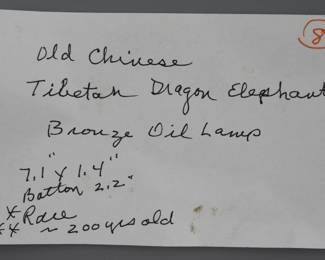 8
Old Chinese
Tibetan Dragon Elephant
Bronze Oil Lamp
7.1" x 1.4"
Bottom 2.2"
*Rare
** ~ 200 yrs old